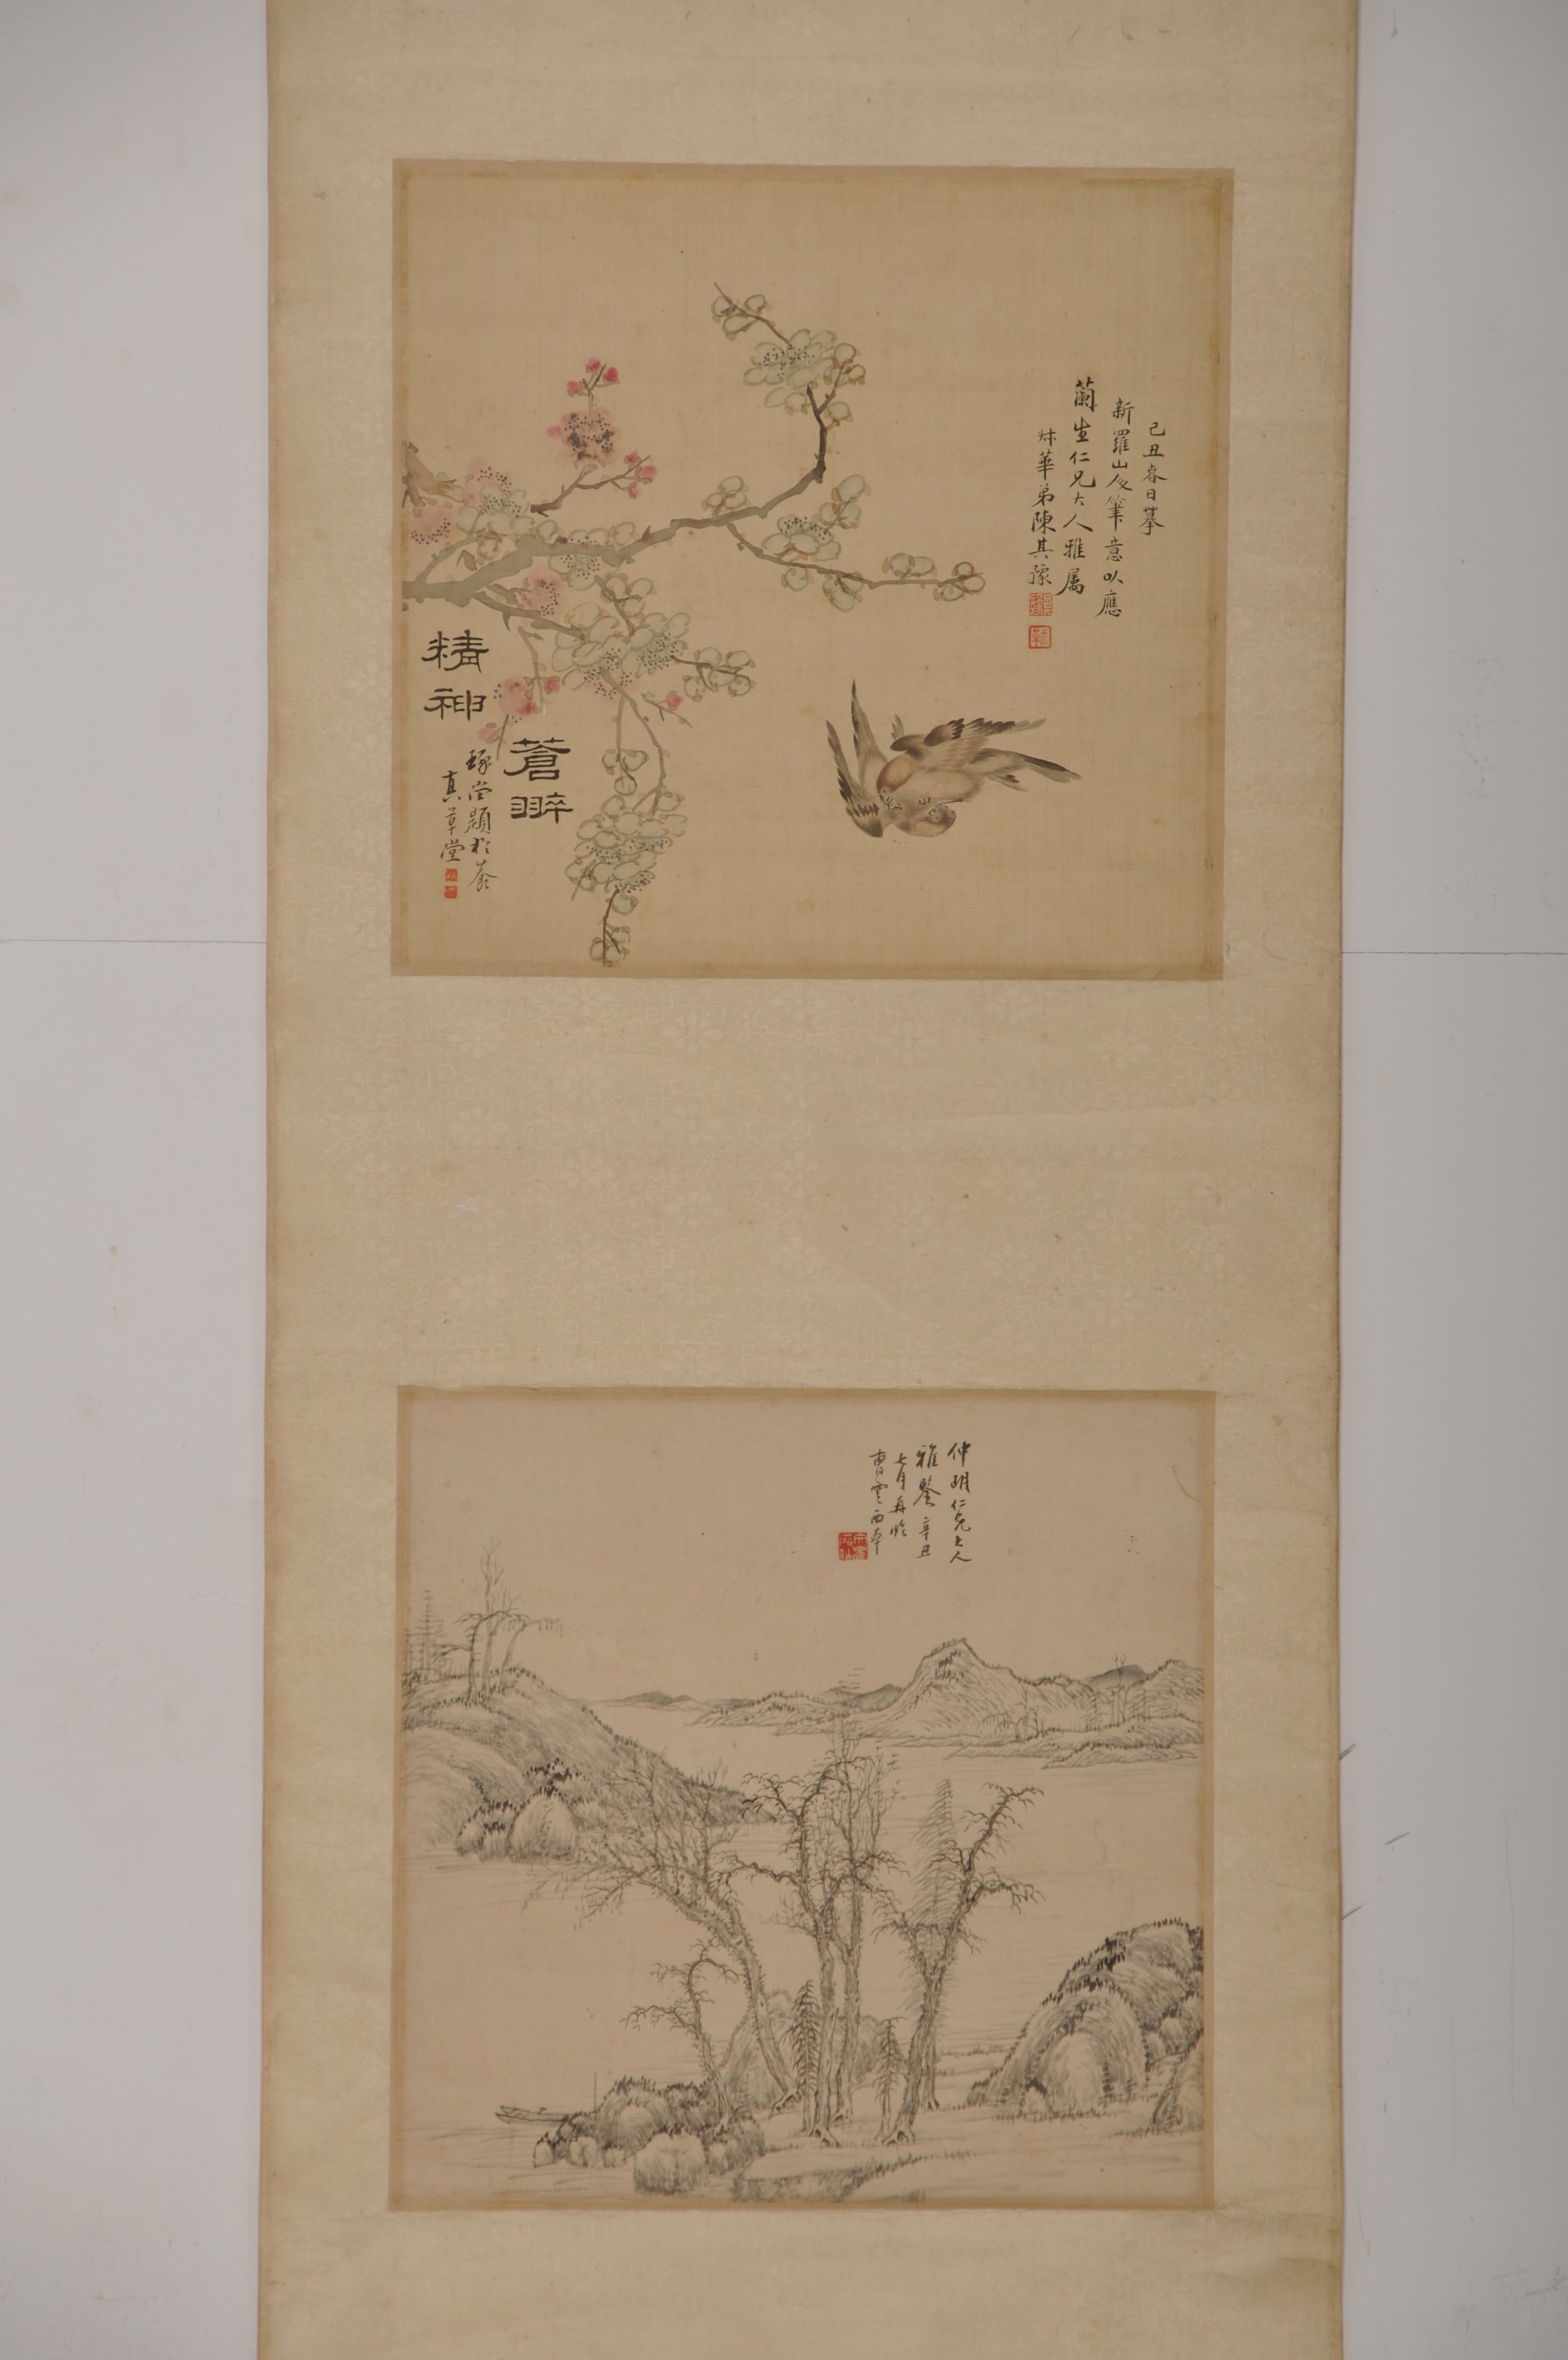 己丑春日摹
新羅山人筆意以應
蘭生仁兄大人雅属
秌華弟陳其豫
蒼翠
精神
琢堂題於養
真草堂
仲明仁兄大人
雅鑒辛丑
七月再臨
曹雲西本